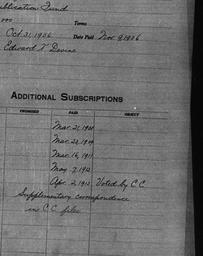 ublication Fund
000 Terms
Oct 31, 1906 Date Paid Nov 9 1906
Edward T. Devine
ADDITIONAL SUBSCRIPTIONS
PROMISED PAID OBJECT
Mar. 21, 1908
Mar. 23, 1909
Mar. 16, 1911
May 7, 1912
Apr. 2, 1913 Voted by C.C.
Supplementary correspondence
in C.C. files